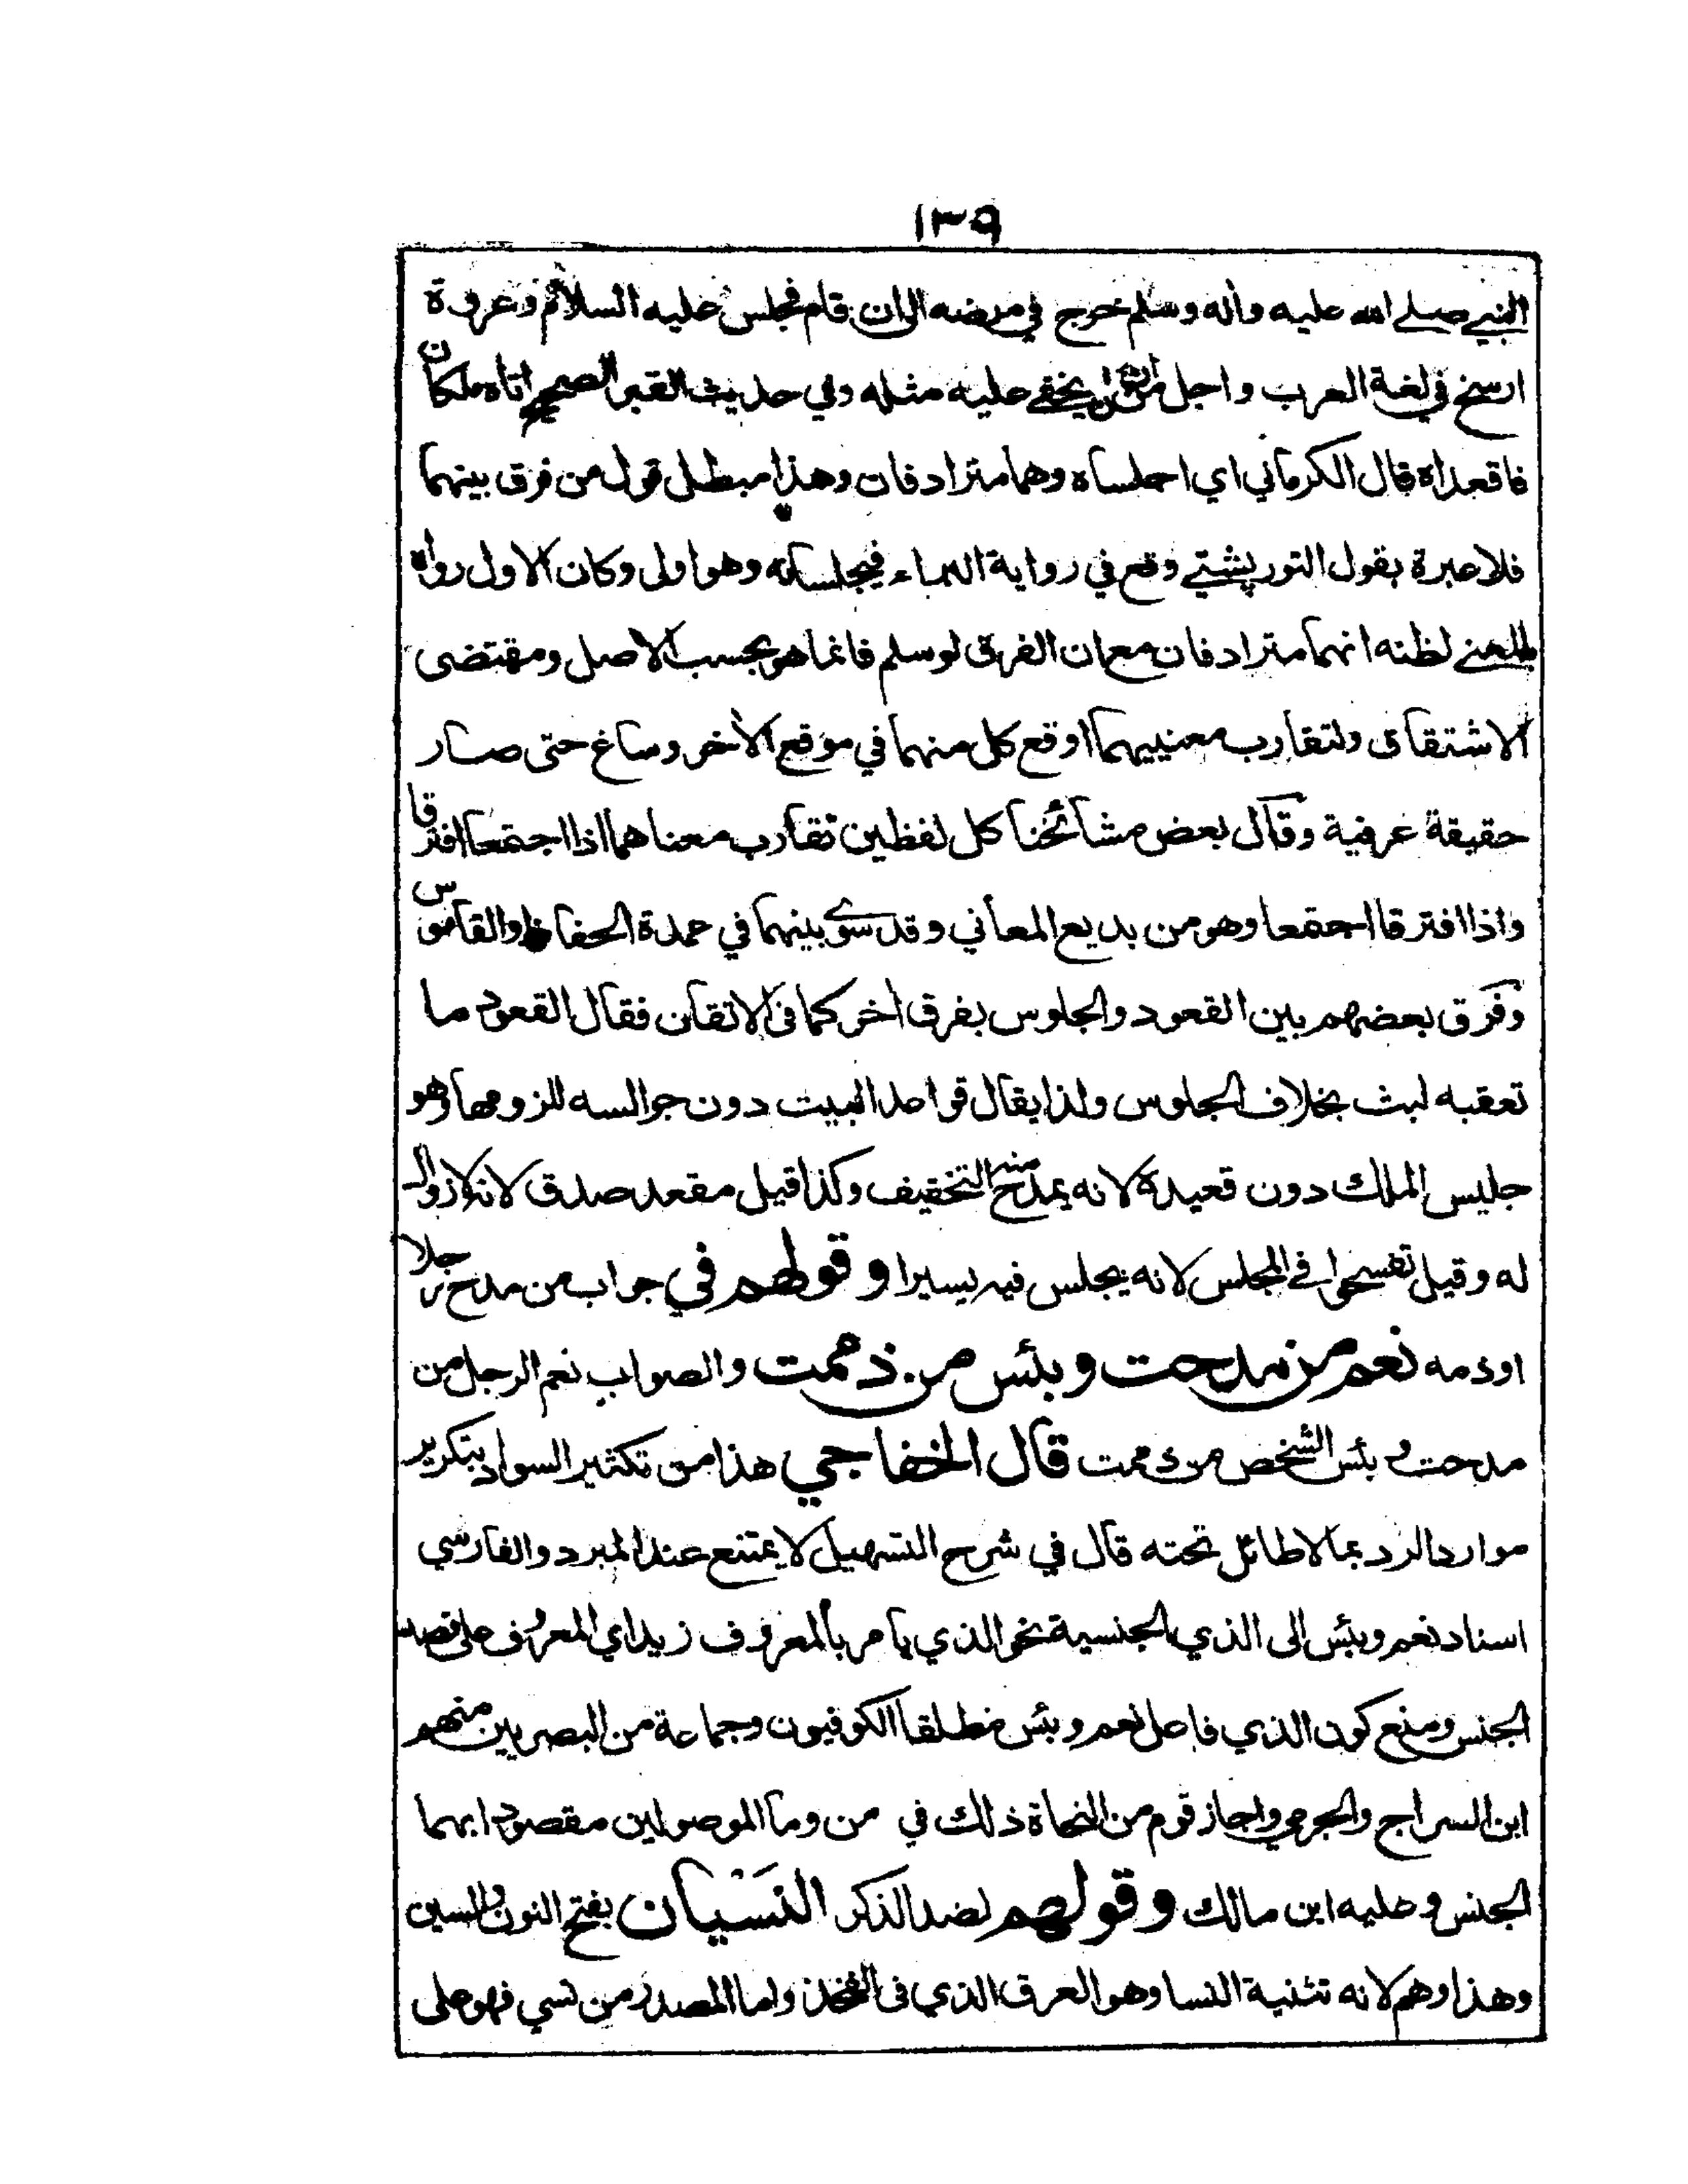 ١٣٩
النبي صلے الله عليه وأله وسلم خرج في مرضه الى ان قام فجلس عليه السلام وعروة
ارسخ في لغة العرب واجل من ان يخفے عليه مثله وفي حديث القبر الصحيح اتاه ملكان
فاقعداه قال الكرماني اي اجلساه وهما مترادفان وهذا مبطل قول من فرق بينهما
فلا عبرة بقول التورپشتے وقع في رواية البراء فيجلسانه وهو اولى وكان الاول رواه
بالمعنے لظنه انهما مترادفان مع ان الفرق لو سلم فانما هو بحسب الاصل ومقتضى
الاشتقاق ولتقارب معنييهما اوقع كل منهما في موقع الأخر وساغ حتى صار
حقيقة عرفية وقال بعض مشائخنا كل لفظين تقارب معناهما اذا اجتمعا افترقا
واذا افترقا اجتمعا وهو من بديع المعاني وقد سوے بينهما في عمدة الحفاظ والقاموس
وفرق بعضهم بين القعود والجلوس بفرق أخر كما فى الاتقان فقال القعود ما
تعقبه لبث بخلاف الجلوس ولذا يقال قواعد البيت دون جوالسه للزومها وهو
جليس الملك دون قعيده لانه يمدح منه التخفيف وكذا قيل مقعد صدق لانه لا زوال
له وقيل تفسحوا فے المجلس لانه يجلس فيه يسيرا وقولهم في جواب من مدح رجلا
اوذمه نعم من مدحت وبئس من ذممت والصواب نعم الرجل من
مدحت وبئس الشخص من ذممت قال الخفاجي هذا من تكثير السواد بتكرير
موارد الرد بما لا طائل تحته قال في شرح التسهيل لا يمتنع عند المبرد والفارسي
اسناد نعم وبئس الى الذي الجنسية نحو الذي يأمر بالمعروف زيد اي المعروف على قصد
الجنس ومنع كون الذي فاعل نعم وبئس مطلقا الكوفيون وجماعة من البصريين منهم
ابن السراج والجرمي واجاز قوم من النحاة ذلك في من وما الموصولين مقصودا بهما
الجنس وعليه ابن مالك وقولهم لضد الذكر النَسَيان بفتح النون والسين
وهذا وهم لانه تثنية النسا وهو العرق الذي فى الفخذ واما المصدر من نسي فهو على